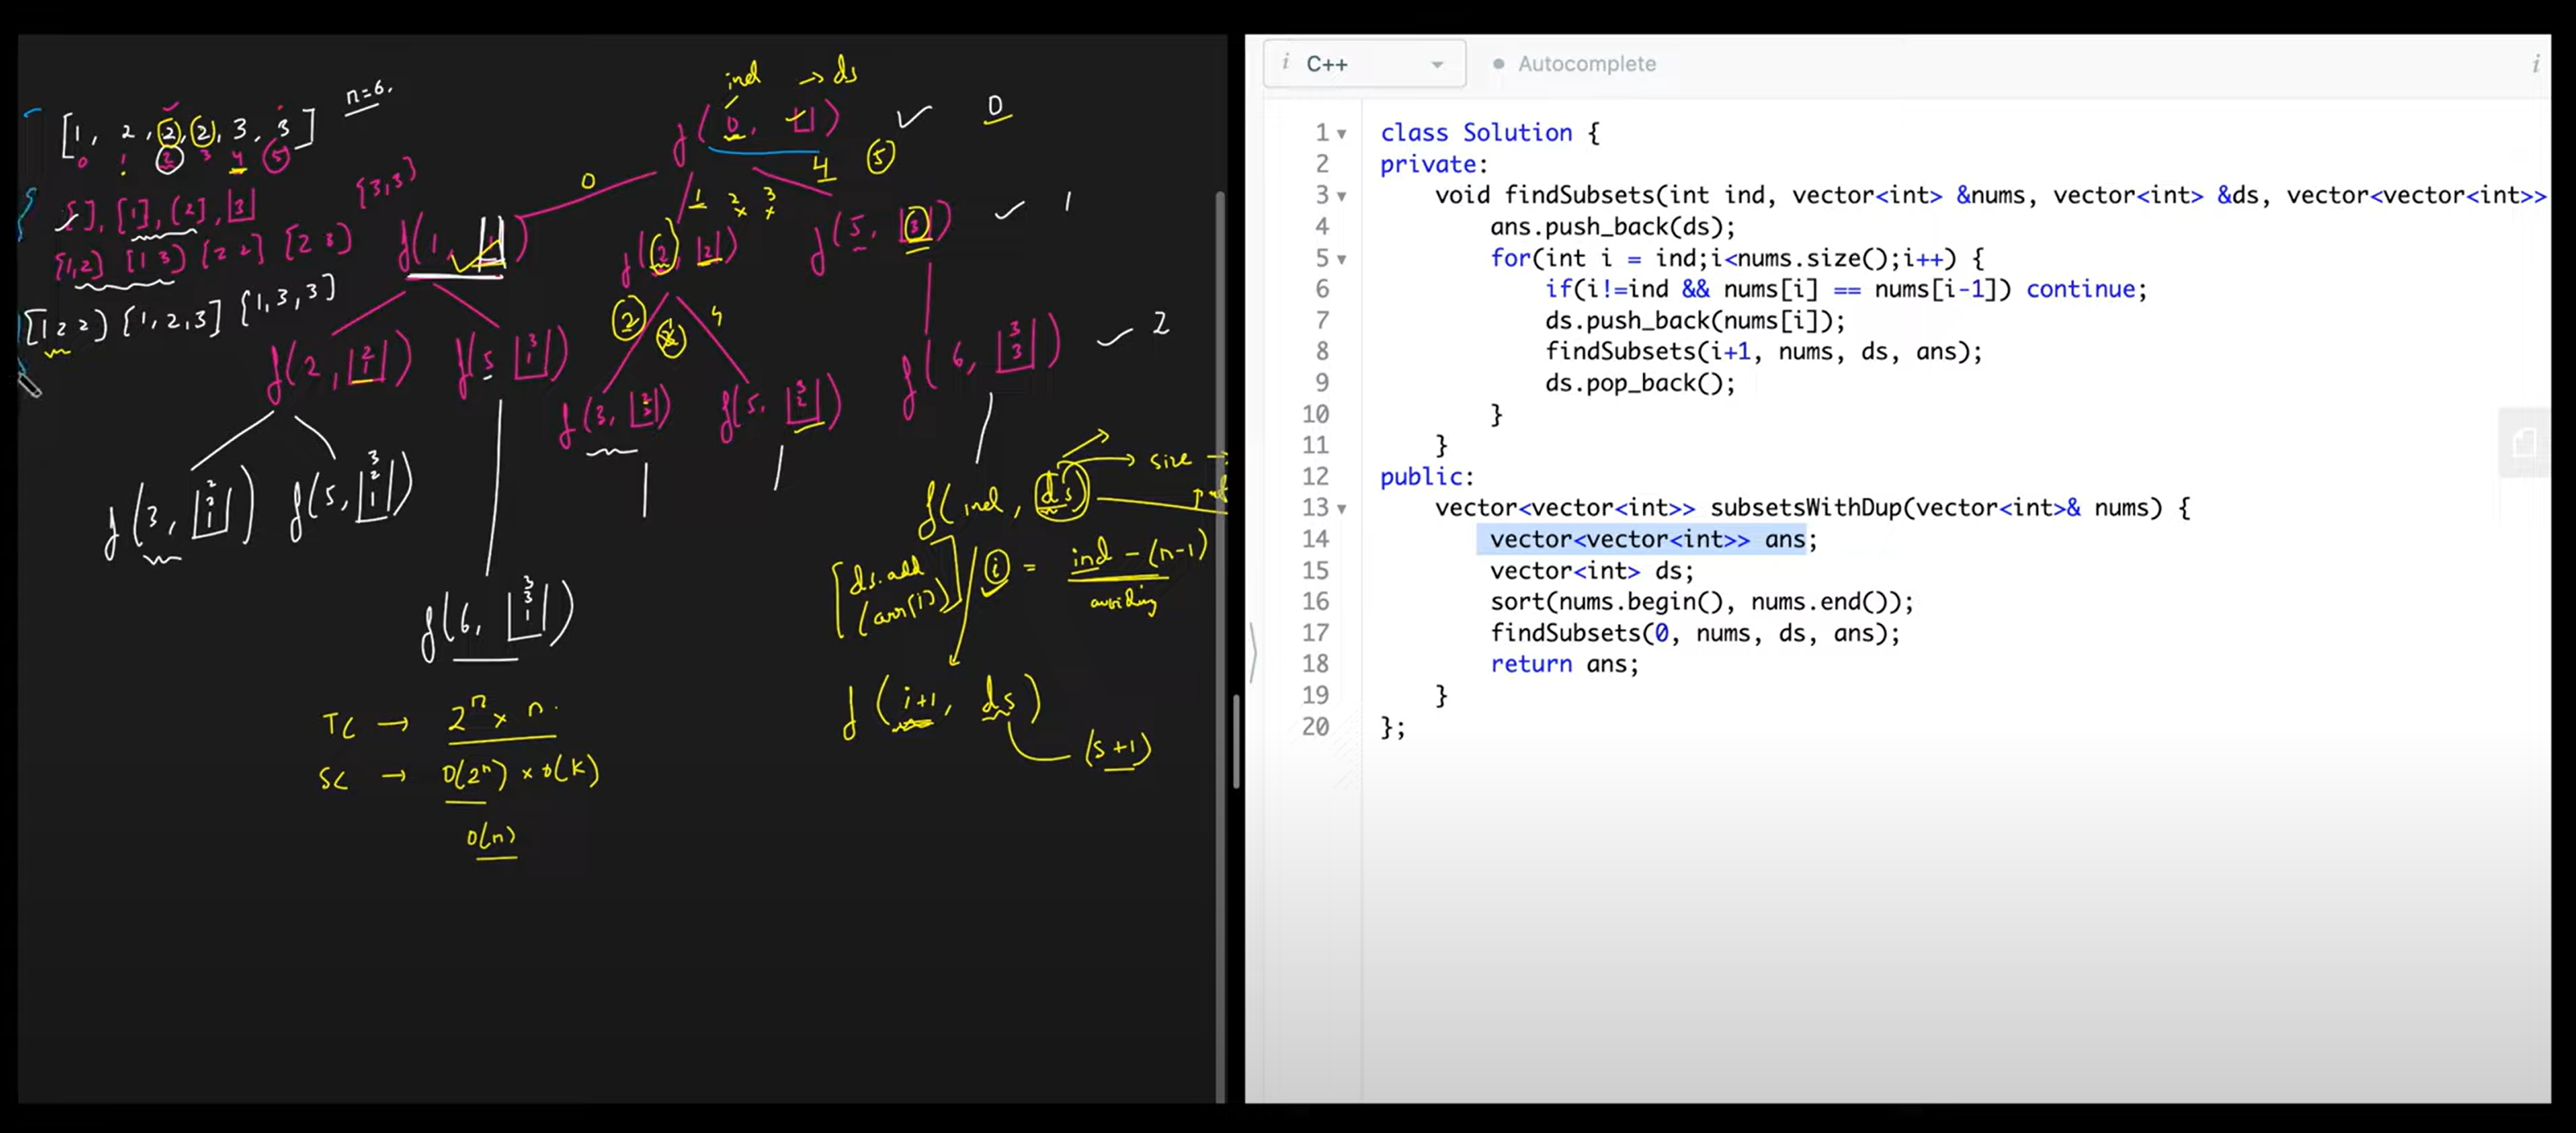 [1, 2, 2, 2, 3, 3] n=6.
0 1 2 3 4 5
[], [1], [2], [3] [3,3]
[1,2] [1 3] [2 2] [2 3]
[1 2 2] [1,2,3] [1,3,3]
ind → ds
f(0, []) 0
0 1 2 3 4 5
f(1, 1) f(2, 2) f(5, 3) 1
2 3 4
f(2, 2 1) f(5 3 1) f(3, 2 2) f(5, 3 2) f(6, 3 3) 2
f(3, 2 2 1) f(5, 3 2 1)
f(6, 3 3 1)
TC → 2ⁿ x n.
SC → O(2ⁿ) x O(K)
O(n)
f(ind, ds) → size →
[ds.add (arr[i])] i = ind - (n-1)
avoiding
f(i+1, ds)
(s+1)
i C++ Autocomplete i
1 class Solution {
2 private:
3 void findSubsets(int ind, vector<int> &nums, vector<int> &ds, vector<vector<int>>
4 ans.push_back(ds);
5 for(int i = ind;i<nums.size();i++) {
6 if(i!=ind && nums[i] == nums[i-1]) continue;
7 ds.push_back(nums[i]);
8 findSubsets(i+1, nums, ds, ans);
9 ds.pop_back();
10 }
11 }
12 public:
13 vector<vector<int>> subsetsWithDup(vector<int>& nums) {
14 vector<vector<int>> ans;
15 vector<int> ds;
16 sort(nums.begin(), nums.end());
17 findSubsets(0, nums, ds, ans);
18 return ans;
19 }
20 };